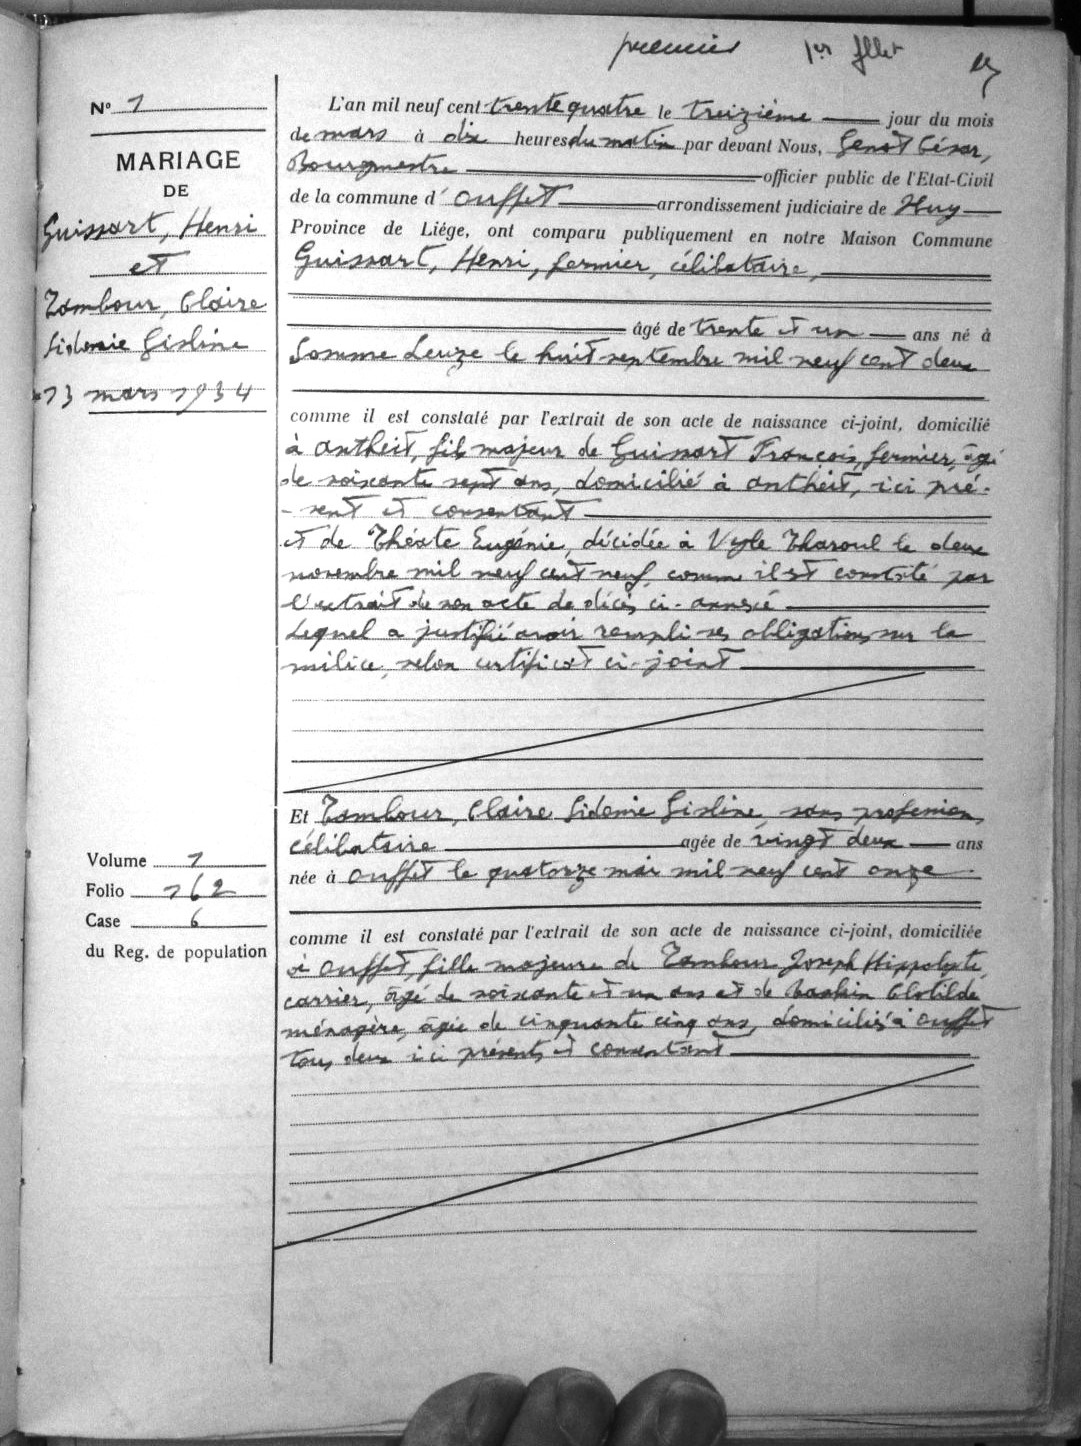 premier 1er fllet
N° 1
MARIAGE
DE
Guissart, Henri
et
Tambour, Claire
Sidonie Gisline
13 mars 1934
Volume 1
Folio 162
Case 6
du Reg. de population
L'an mil neuf cent trente quatre le treizième jour du mois
de mars à dix heures du matin par devant Nous, Genot César,
Bourgmestre officier public de l'Etat-Civil
de la commune d' Ouffet arrondissement judiciaire de Huy
Province de Liége, ont comparu publiquement en notre Maison Commune
Guissart, Henri, fermier, célibataire,
âgé de trente et un ans né à
Somme Leuze le huit septembre mil neuf cent deux
comme il est constaté par l'extrait de son acte de naissance ci-joint, domicilié
à Antheit, fils majeur de Guissart François, fermier, âgé
de soixante sept ans, domicilié à Antheit, ici pré-
-sent et consentant
et de Théate Eugénie, décédée à Vyle Tharoul le deux
novembre mil neuf cent neuf, comme il est constaté par
l'extrait de son acte de décès ci-annexé
Lequel a justifié avoir rempli ses obligations sur la
milice, selon certificat ci-joint
Et Tambour, Claire Sidonie Gisline, sans profession,
célibataire agée de vingt deux ans
née à Ouffet le quatorze mai mil neuf cent onze
comme il est constaté par l'extrait de son acte de naissance ci-joint, domiciliée
à Ouffet, fille majeure de Tambour Joseph Hippolyte,
carrier, âgé de soixante et un ans et de Baskin Clotilde
ménagère, âgée de cinquante cinq ans, domiciliés à Ouffet
tous deux ici présents et consentant